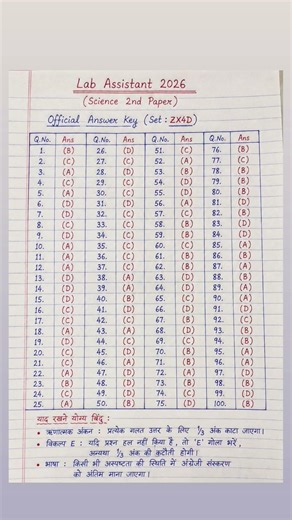 Lab Assistant 2026
(Science 2nd Paper)
Official Answer Key (Set : ZX4D)
Q.No. Ans Q.No. Ans Q.No. Ans Q.No. Ans
1. (B) 26. (D) 51. (C) 76. (B)
2. (C) 27. (C) 52. (A) 77. (C)
3. (A) 28. (D) 53. (B) 78. (B)
4. (C) 29. (C) 54. (D) 79. (B)
5. (A) 30. (C) 55. (D) 80. (B)
6. (D) 31. (D) 56. (A) 81. (C)
7. (D) 32. (C) 57. (C) 82. (B)
8. (C) 33. (C) 58. (B) 83. (D)
9. (D) 34. (C) 59. (D) 84. (D)
10. (A) 35. (C) 60. (C) 85. (A)
11. (A) 36. (C) 61. (B) 86. (B)
12. (A) 37. (C) 62. (B) 87. (A)
13. (D) 38. (A) 63. (D) 88. (B)
14. (D) 39. (A) 64. (D) 89. (A)
15. (D) 40. (B) 65. (C) 90. (A)
16. (C) 41. (D) 66. (D) 91. (D)
17. (C) 42. (C) 67. (B) 92. (C)
18. (A) 43. (A) 68. (D) 93. (B)
19. (D) 44. (C) 69. (C) 94. (B)
20. (C) 45. (D) 70. (B) 95. (A)
21. (C) 46. (A) 71. (B) 96. (A)
22. (A) 47. (D) 72. (A) 97. (D)
23. (B) 48. (D) 73. (B) 98. (B)
24. (C) 49. (D) 74. (C) 99. (D)
25. (A) 50. (B) 75. (D) 100. (B)
याद रखने योग्य बिंदु :
• ऋणात्मक अंकन : प्रत्येक गलत उत्तर के लिए 1/3 अंक काटा जाएगा।
• विकल्प E : यदि प्रश्न हल नहीं किया है, तो 'E' गोला भरें,
अन्यथा 1/3 अंक की कटौती होगी।
• भाषा : किसी भी अस्पष्टता की स्थिति में अंग्रेजी संस्करण
को अंतिम माना जाएगा।